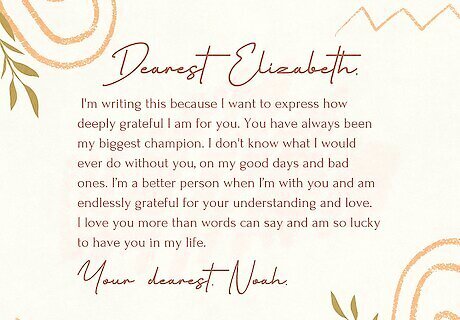 Dearest Elizabeth,
I'm writing this because I want to express how
deeply grateful I am for you. You have always been
my biggest champion. I don't know what I would
ever do without you, on my good days and bad
ones. I'm a better person when I'm with you and am
endlessly grateful for your understanding and love.
I love you more than words can say and am so lucky
to have you in my life.
Your dearest, Noah.